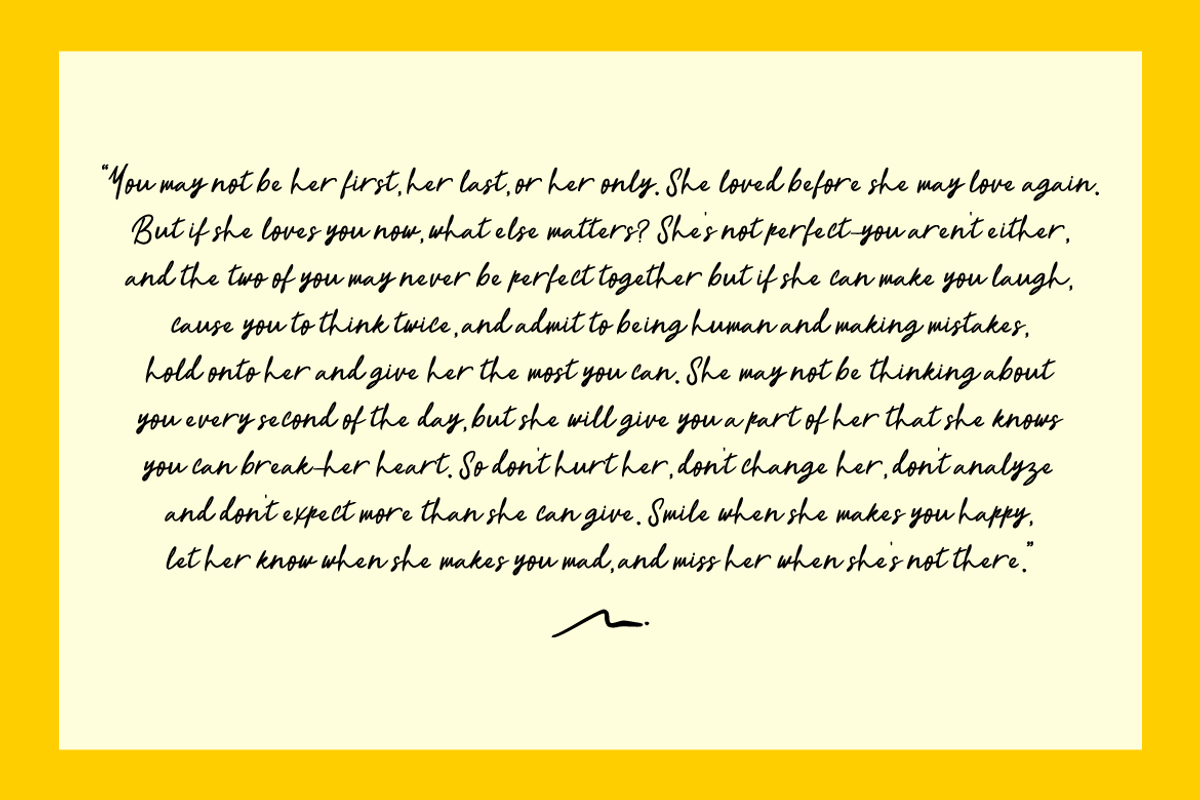 “You may not be her first, her last, or her only. She loved before she may love again.
But if she loves you now, what else matters? She's not perfect—you aren't either,
and the two of you may never be perfect together but if she can make you laugh,
cause you to think twice, and admit to being human and making mistakes,
hold onto her and give her the most you can. She may not be thinking about
you every second of the day, but she will give you a part of her that she knows
you can break—her heart. So don't hurt her, don't change her, don't analyze
and don't expect more than she can give. Smile when she makes you happy,
let her know when she makes you mad, and miss her when she's not there.”